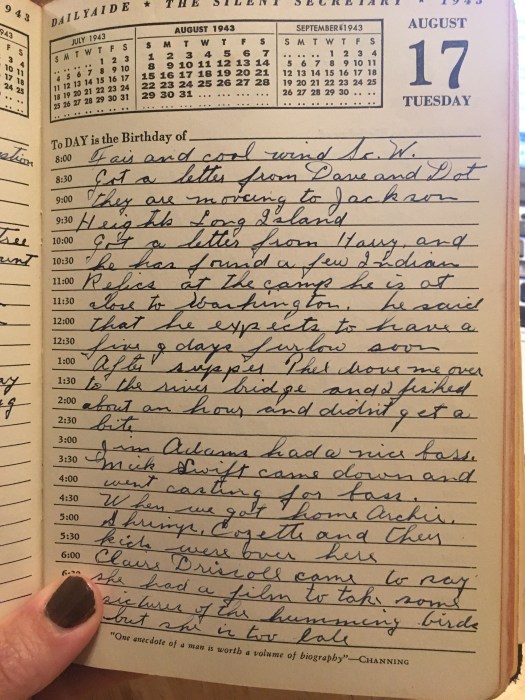 943
DAILYAIDE * THE SILENT SECRETARY * 1943
JULY 1943
S M T W T F S
.. .. .. .. 1 2 3
4 5 6 7 8 9 10
11 12 13 14 15 16 17
18 19 20 21 22 23 24
25 26 27 28 29 30 31
AUGUST 1943
S M T W T F S
1 2 3 4 5 6 7
8 9 10 11 12 13 14
15 16 17 18 19 20 21
22 23 24 25 26 27 28
29 30 31 .. .. .. ..
SEPTEMBER 1943
S M T W T F S
.. .. .. 1 2 3 4
5 6 7 8 9 10 11
12 13 14 15 16 17 18
19 20 21 22 23 24 25
26 27 28 29 30 .. ..
AUGUST
17
TUESDAY
To DAY is the Birthday of
8:00 Fair and cool wind W.
8:30 Got a letter from Dave and Dot
9:00 they are moveing to Jackson
9:30 Heights Long Island
10:00 Got a letter from Harry, and
10:30 he has found a few Indian
11:00 Relics at the camp he is at
11:30 close to Washington. he said
12:00 that he expects to have a
12:30 five days furlow soon
1:00 After supper drove me over
1:30 to the river bridge and I fished
2:00 about an hour and didn't get a
2:30 bite
3:00 Jim Adams had a nice bass.
3:30 Mick Swift came down and
4:00 went casting for bass.
4:30 When we got home Archie,
5:00 Shrimp, Cozette and their
5:30 kids were over here
6:00 Claire Driscoll came to say
she had a film to take some
pictures of the humming birds
but she is too late
"One anecdote of a man is worth a volume of biography"—CHANNING